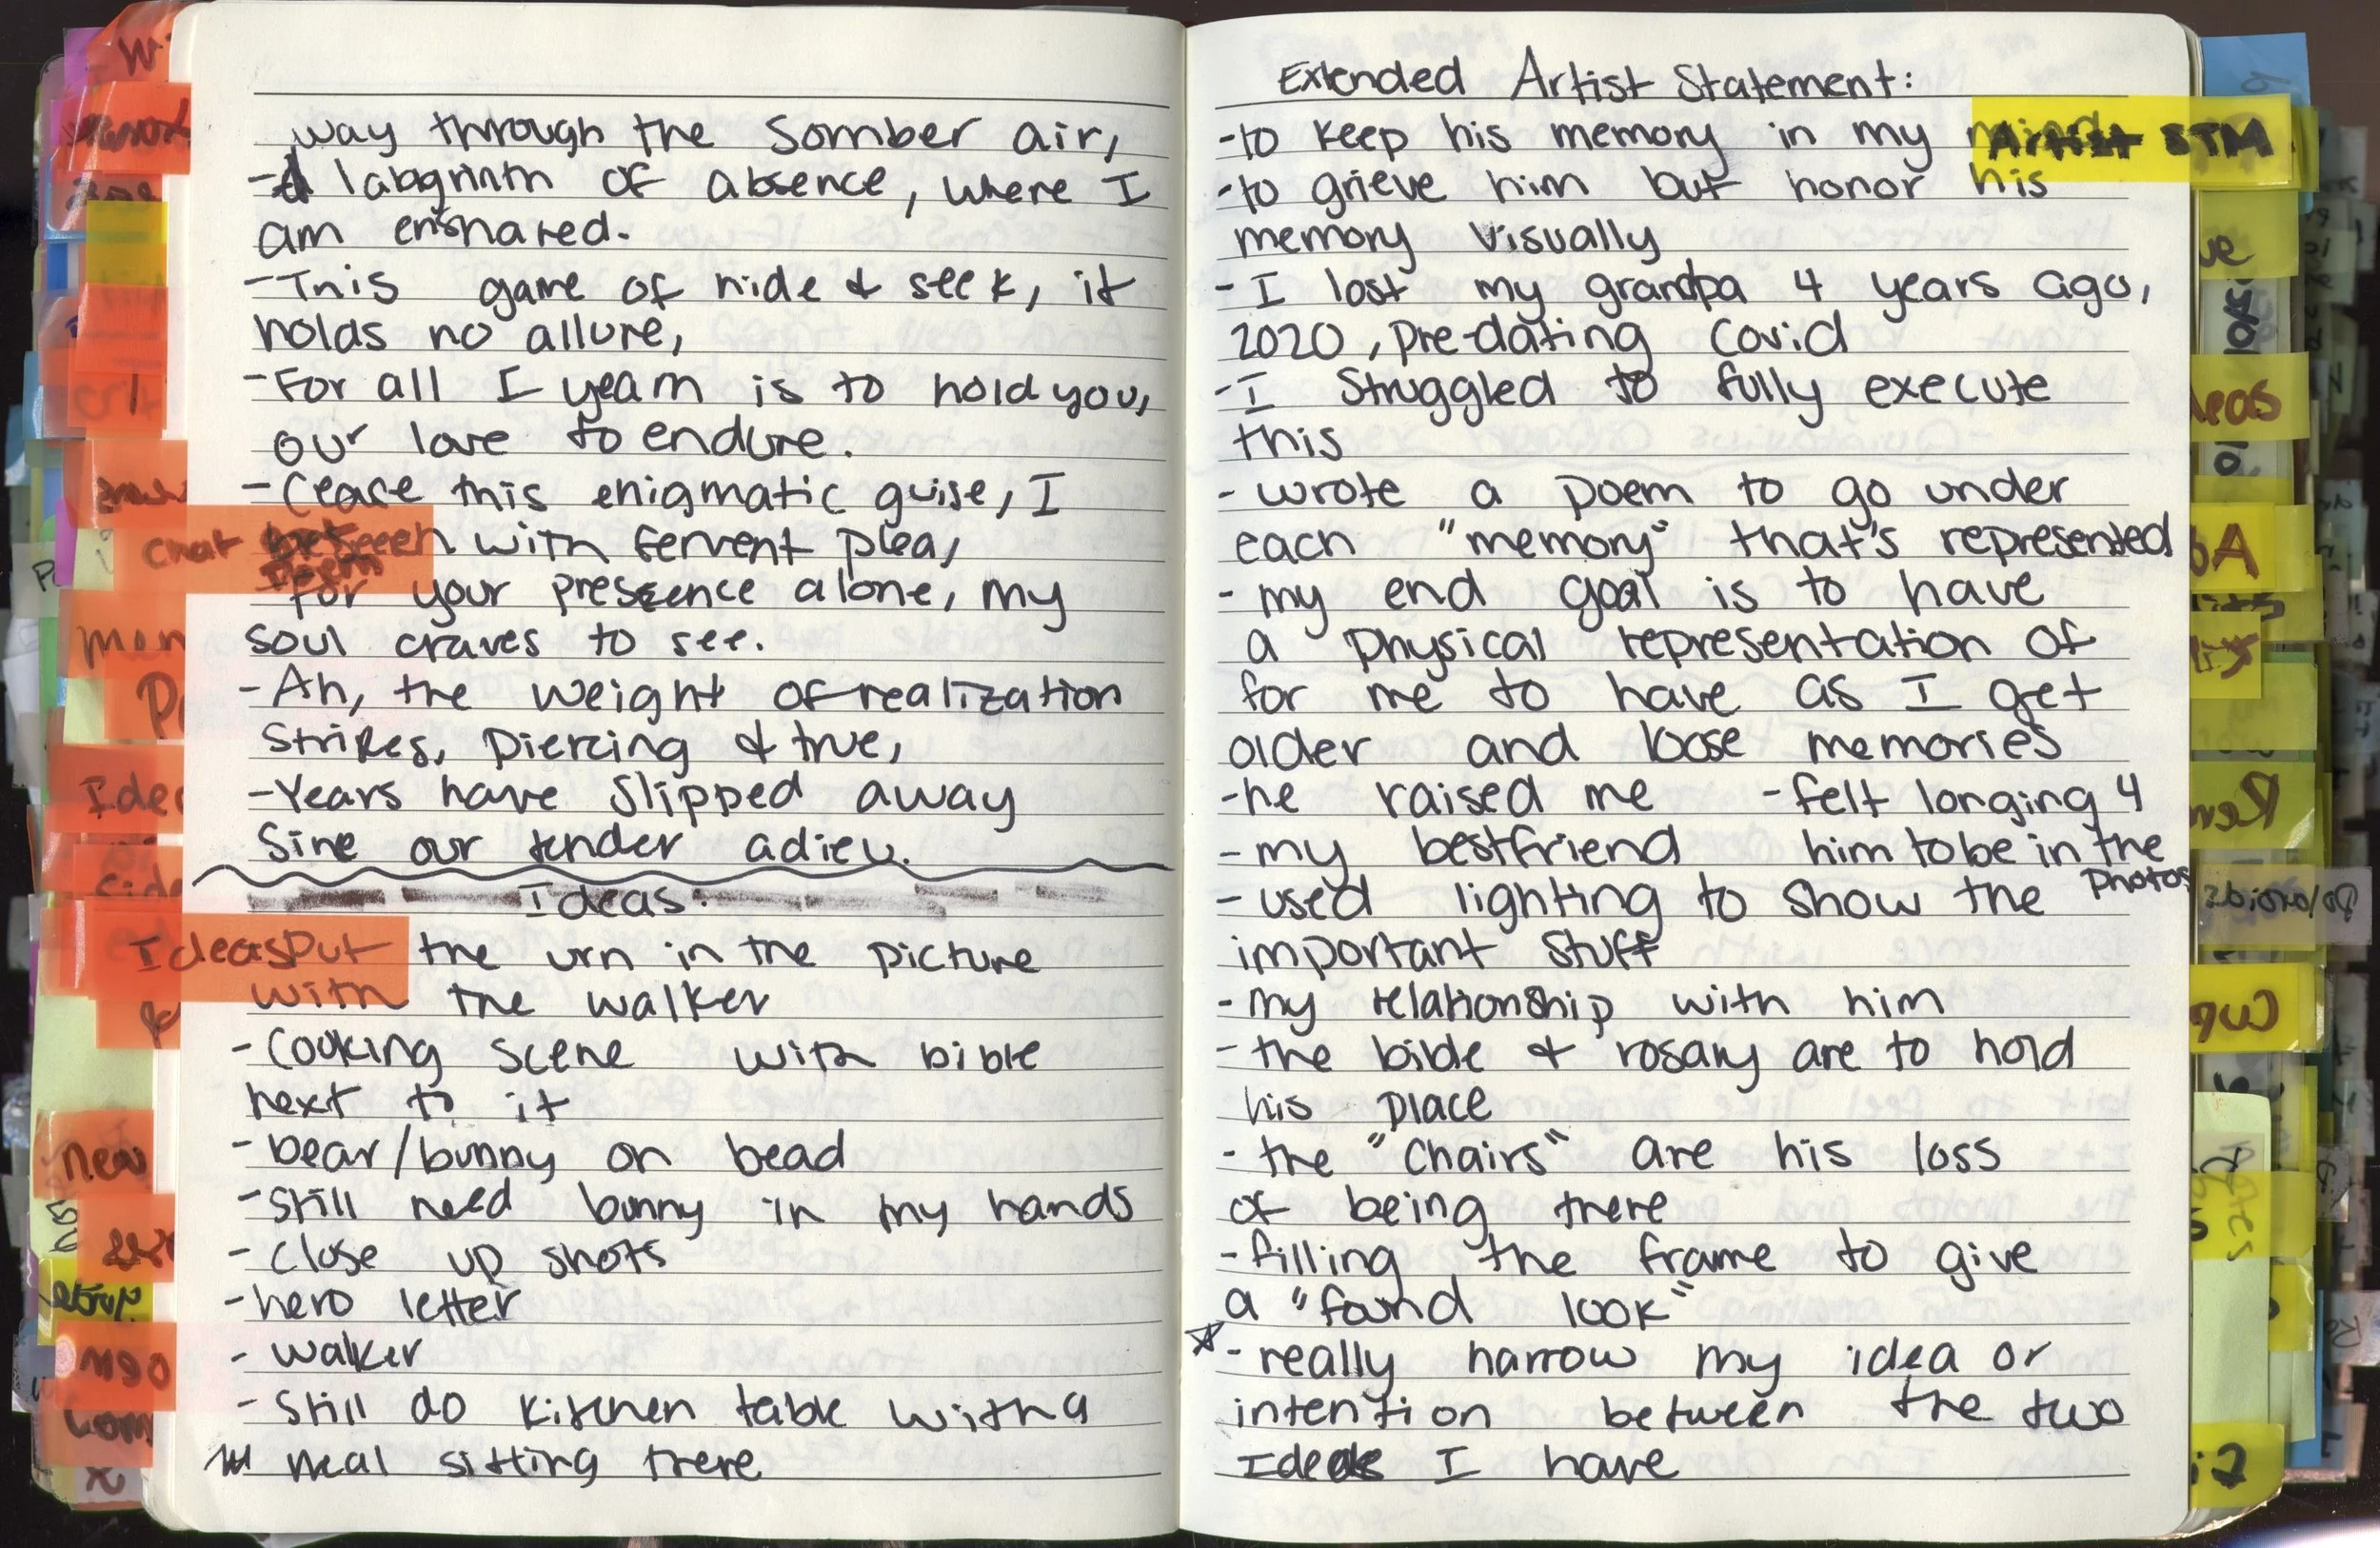 way through the somber air,
-A labyrinth of absence, where I
am ensnared.
-This game of hide & seek, it
holds no allure,
-For all I yearn is to hold you,
our love to endure.
-Cease this enigmatic guise, I
Chat between with fervent plea,
Poem
-For your presence alone, my
soul craves to see.
-Ah, the weight of realization
strikes, piercing & true,
-Years have slipped away
Sine our tender adieu.
Ideas:
Ideas Put the urn in the picture
with the walker
-Cooking scene with bible
next to it
-bear/bunny on bead
-Still need bunny in my hands
-Close up shots
-hero letter
-walker
-Still do kitchen table with a
meal sitting there
Extended Artist Statement:
-to keep his memory in my mind
Artist STM
-to grieve him but honor his
memory visually
-I lost my grandpa 4 years ago,
2020, Pre-dating Covid
-I Struggled to fully execute
this
-wrote a poem to go under
each "memory" that's represented
-my end goal is to have
a physical representation of
for me to have as I get
older and loose memories
-he raised me -felt longing 4
-my bestfriend him to be in the
photos
-used lighting to show the
important stuff
-my relationship with him
-the bible & rosary are to hold
his place
-the "Chairs" are his loss
of being there
-filling the frame to give
a "found look"
-really narrow my idea or
intention between the two
Ideas I have